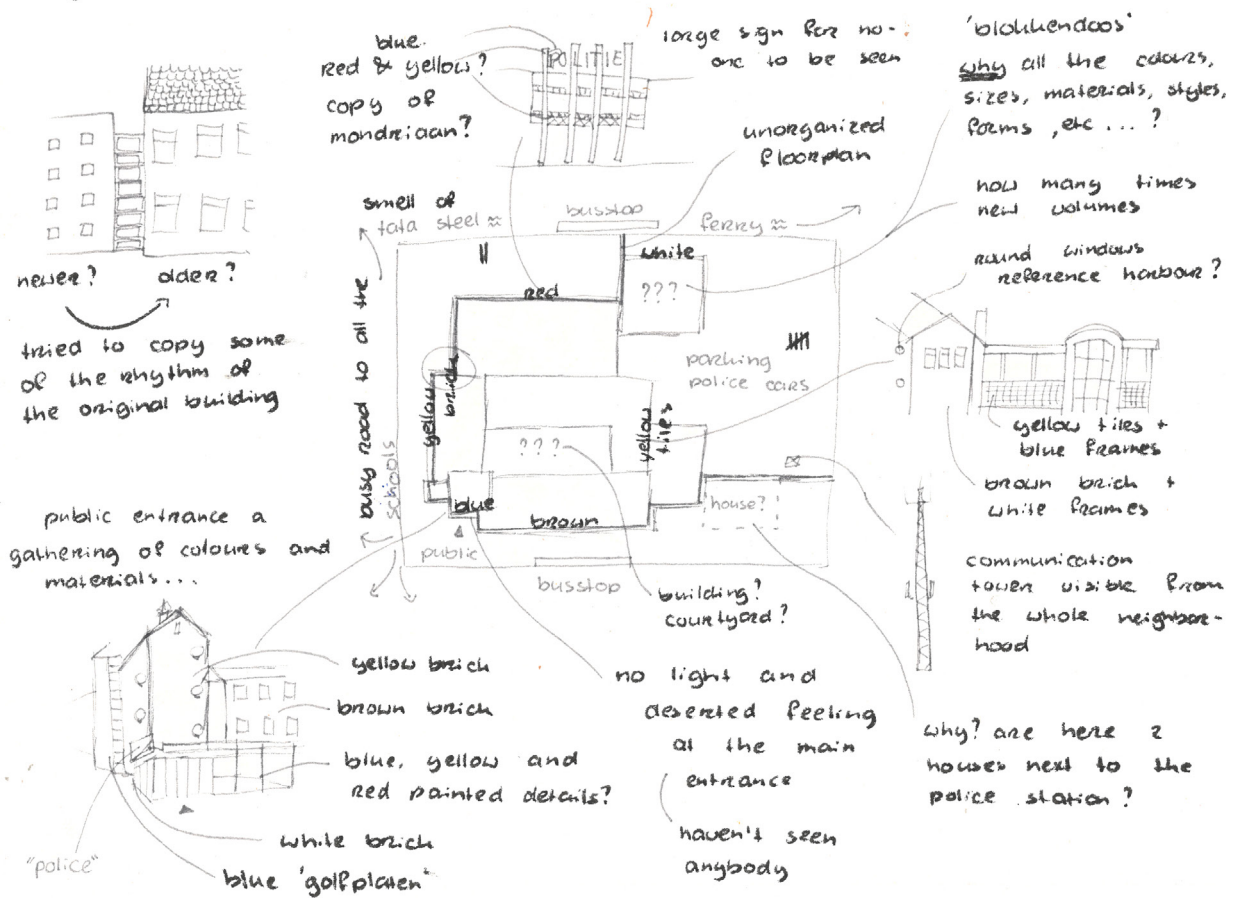 blue.
red & yellow?
copy of
mondriaan?
POLITIE
large sign for no-
one to be seen
'blokkendoos'
why all the colours,
sizes, materials, styles,
forms, etc ... ?
unorganized
floorplan
how many times
new volumes
round windows
reference harbour?
newer?
older?
tried to copy some
of the rhythm of
the original building
smell of
tata steel
busstop
ferry
busy road to all the
schools
white
???
red
yellow
brick
parking
police cars
yellow
tiles
???
blue
brown
house?
public
busstop
building?
courtyard?
yellow tiles +
blue frames
brown brick +
white frames
communication
tower visible from
the whole neighbor-
hood
public entrance a
gathering of colours and
materials...
yellow brick
brown brick
blue, yellow and
red painted details?
white brick
blue 'golfplaten'
"police"
no light and
deserted feeling
at the main
entrance
haven't seen
anybody
why? are here 2
houses next to the
police station?